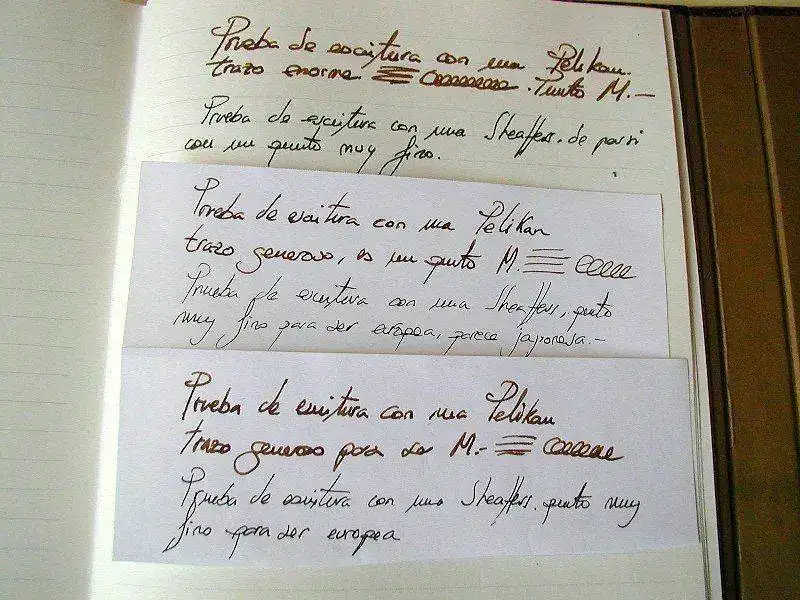 Prueba de escritura con una Pelikan.
trazo enorme. Punto M.-
Prueba de escritura con una Sheaffers. de
con un punto muy fino.
Prueba de escritura con una Pelikan
trazo generoso, es un punto M.
Prueba de escritura con una Sheaffers, punto
muy fino para ser europea, parece japonesa.-
Prueba de escritura con una Pelikan
trazo generoso para ser M.-
Prueba de escritura con una Sheaffers. punto muy
fino para ser europea